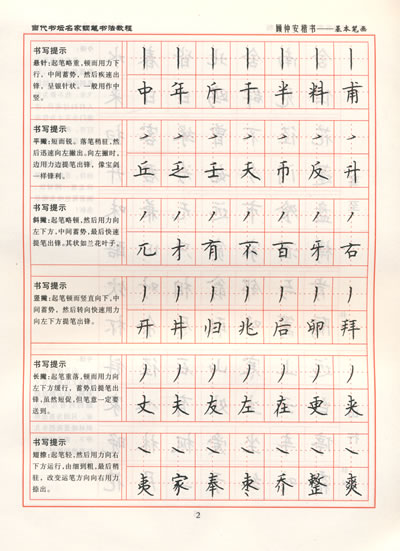 当代书坛名家硬笔书法教程
顾仲安楷书——基本笔画
书写提示
悬针:起笔略重,顿而用力下
行,中间蓄势,然后疾速出
锋,呈银针状。一般用作中
竖。
中 年 斤 千 半 料 甫
书写提示
平撇:短而硬。落笔稍驻,然
后迅速向左撇出。向左撇时,
边用力边提笔出锋,像宝剑
一样锋利。
丘 乏 壬 夭 币 反 升
书写提示
斜撇:起笔略顿,然后用力向
左下方,中间蓄势,最后快速
提笔出锋,其状如兰花叶子。
兀 才 有 不 百 牙 右
书写提示
竖撇:起笔顿而竖直向下,中
间蓄势,然后转向快速用力
向左下方提笔出锋。
开 井 归 兆 后 卯 拜
书写提示
长撇:起笔重落,顿而用力向
左下方缓行,蓄势后提笔出
锋,虽然短促,但笔意一定要
送到。
丈 夫 友 左 在 更 夹
书写提示
短捺:起笔轻,然后用力向右
下方运行,由细到粗,最后稍
驻,改变运笔方向向右用力
捺出。
夷 家 奉 枣 乔 整 爽
2